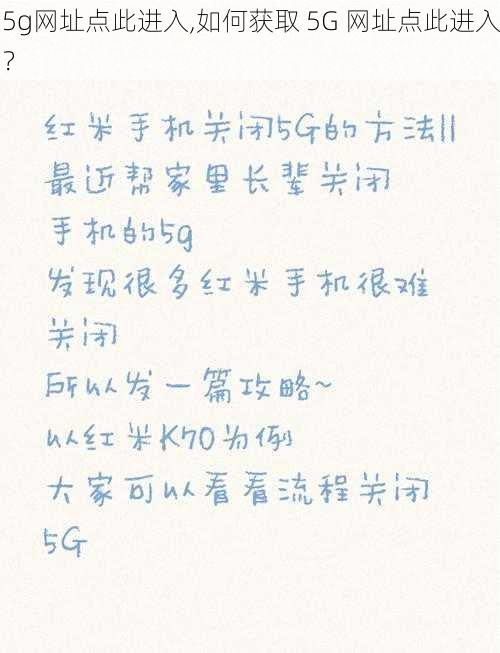 5g网址点此进入,如何获取 5G 网址点此进入
?
红米手机关闭5G的方法||
最近帮家里长辈关闭
手机的5g
发现很多红米手机很难
关闭
所以发一篇攻略~
以红米K70为例
大家可以看看流程关闭
5G